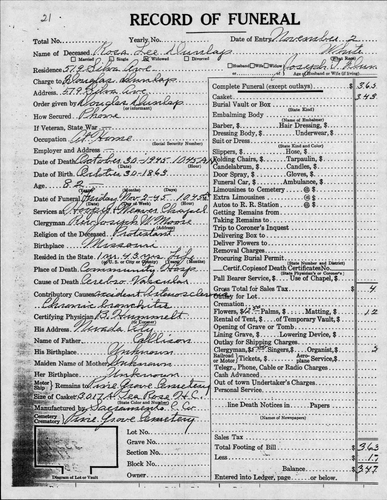 21
RECORD OF FUNERAL
Total No. Yearly No. Date of Entry November 2
Name of Deceased Rosa Lee Dunlap White
Married Single Widowed Divorced Husband Wife Widow Joseph
Residence 579 Silva Ave.
Charge to Douglas Dunlap
Address 579 Silva Ave
Order given by Douglas Dunlap
How Secured Phone
If Veteran, State War
Occupation At Home
(Social Security Number)
Employer and Address
Date of Death October 30-1945 1045 A
Date of Birth October 30-1863
Age 82
Date of Funeral Friday Nov 2-45
Services at Hooper & Weaver Chapel
Clergyman Rev Joseph W Moore
Religion of the Deceased Protestant
Birthplace Missouri
Resided in the State
Place of Death Community Hosp.
Cause of Death Cerebro Vascular
Contributory Causes Accident
Chronic
Certifying Physician B. Hummelt
His Address Nevada City
Name of Father Ellison
His Birthplace Unknown
Maiden Name of Mother Unknown
Her Birthplace Unknown
Motor Ship Remains to Pine Grove Cemetery
Size of Casket
Manufactured by Sacramento C. Co
Cemetery Pine Grove Cemetery
Lot No.
Grave No.
Section No.
Block No.
Owner
Diagram of Lot or Vault
Complete Funeral (except outlays) $ 363
Casket 345
Burial Vault or Box
(State Kind)
Embalming Body
(Name of Embalmer)
Barber, $ Hair Dressing, $
Dressing Body, $ Underwear, $
Suit or Dress
(State Kind and Color)
Slippers, $ Hose, $
Folding Chairs, $ Tarpaulin, $
Candelabrum, $ Candles, $
Door Spray, $ Gloves, $
Funeral Car, $ Ambulance, $
Limousines to Cemetery @ $
Extra Limousines @ $
Autos to R. R. Station @ $
Getting Remains from
Taking Remains to
Trip to Coroner's Inquest
Delivering Box to
Deliver Flowers to
Removal Charges
Procuring Burial Permit
(State Number and District)
Certif. Copies of Death Certificates No.
Pall Bearer Service, $ Use of Chapel, $
Gross Total for Sales Tax $ 4
Outlay for Lot
Cremation
Flowers, $ Palms, $ Matting, $ 12
Rental of Tent, $ of Temporary Vault, $
Opening of Grave or Tomb
Lining Grave, $ Lowering Device, $
Outlay for Shipping Charges
Clergyman, $ Singers, $ Organist, $
Telegr., Phone, Cable or Radio Charges
Cash Advanced
Out of town Undertaker's Charges
Personal Service
line Death Notices in Papers
(Names of Newspapers)
Sales Tax
Total Footing of Bill $ 363
Less
Balance $ 347
Entered into Ledger, page or below.